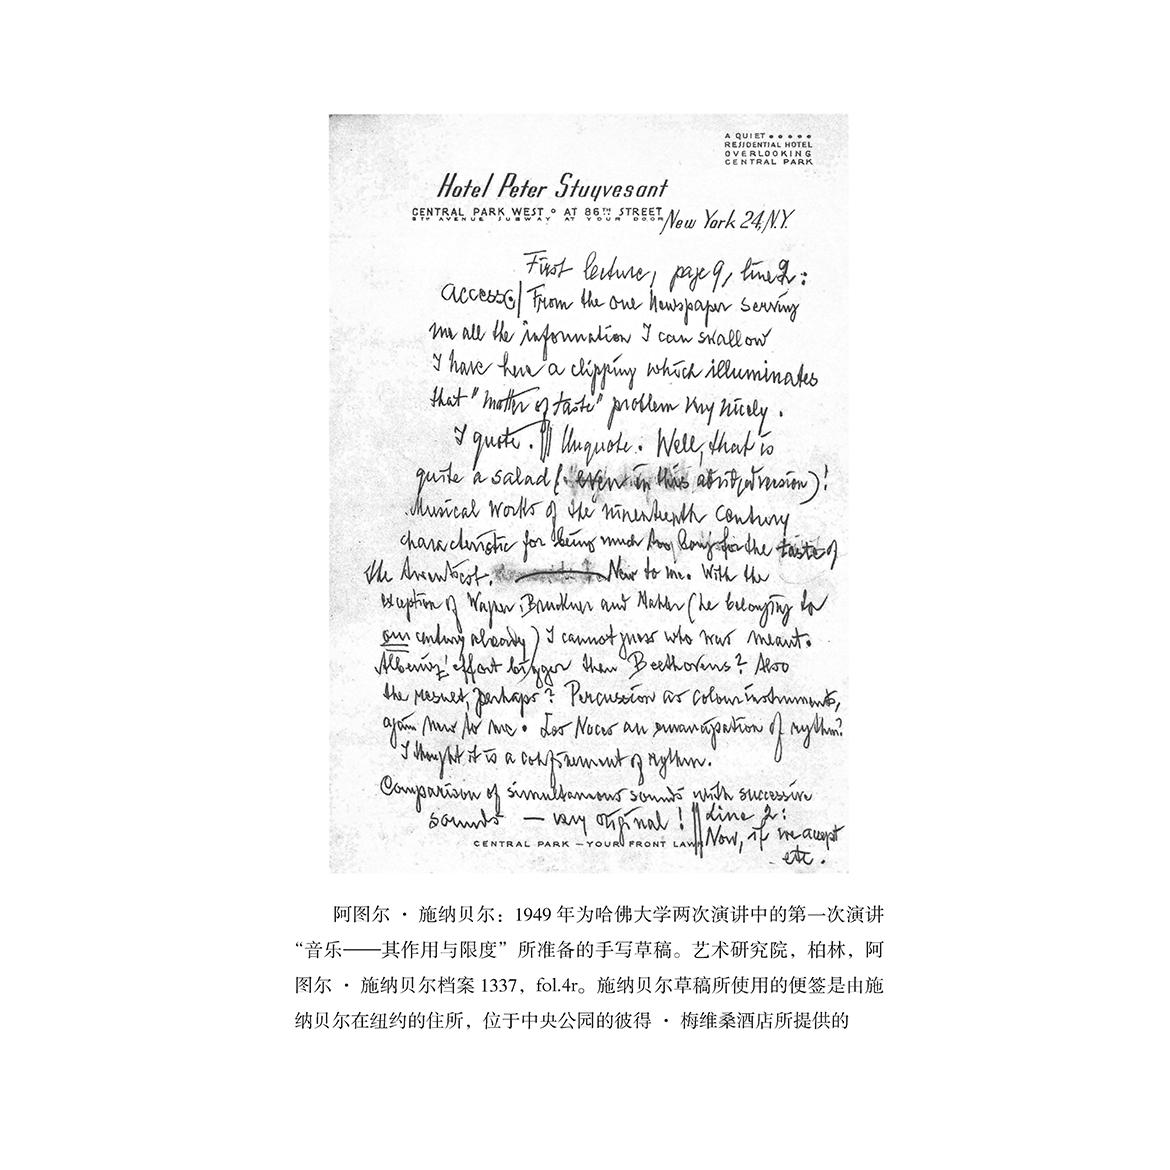 A QUIET
RESIDENTIAL HOTEL
OVERLOOKING
CENTRAL PARK
Hotel Peter Stuyvesant
CENTRAL PARK WEST AT 86TH STREET
8TH AVENUE SUBWAY AT YOUR DOOR
New York 24, N.Y.
First lecture, page 9, line 2:
access/ From the one Newspaper serving
me all the information I can swallow
I have here a clipping which illuminates
that "matter of taste" problem very nicely.
I quote. || Unquote. Well, that is
quite a salad (even in this abridged version)!
Musical works of the nineteenth century
characteristic for being much too long for the taste of
the New to me. With the
exception of Wagner, Bruckner and Mahler (he belonging to
our century already) I cannot guess who was meant.
Albeniz' effort bigger than Beethovens? Also
the result, perhaps? Percussion as colour instruments,
again new to me. Les Noces an emancipation of rythm?
I thought it is a confinement of rythm.
Comparison of simultaneous sounds with successive
sounds — very original! || Line 2:
Now, if we accept
etc.
CENTRAL PARK — YOUR FRONT LAWN
阿图尔·施纳贝尔：1949 年为哈佛大学两次演讲中的第一次演讲
“音乐——其作用与限度”所准备的手写草稿。艺术研究院，柏林，阿
图尔·施纳贝尔档案 1337，fol.4r。施纳贝尔草稿所使用的便签是由施
纳贝尔在纽约的住所，位于中央公园的彼得·梅维桑酒店所提供的